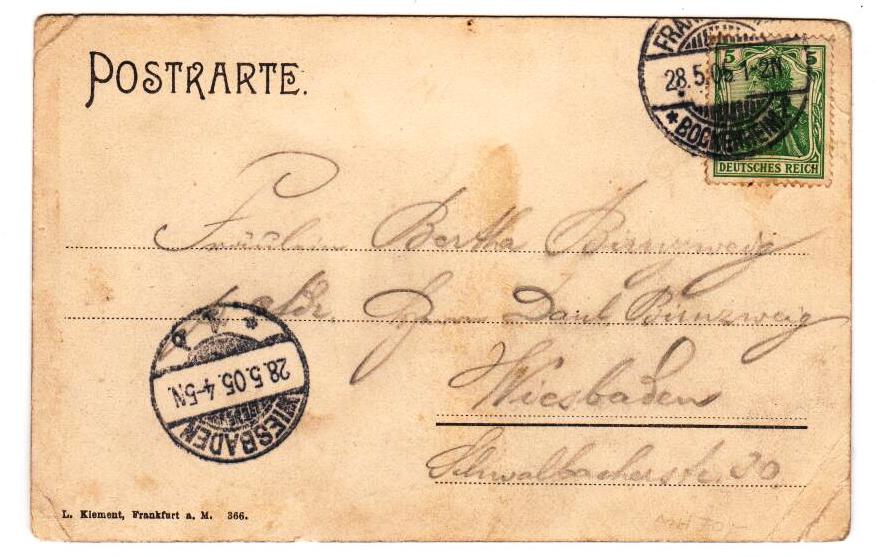 POSTKARTE.
FRAN
28.5.05 1-2N
* BOCKENHEIM
5 5
DEUTSCHES REICH
Fräulein Bertha Birnzweig
Adr. Herrn Birnzweig
Wiesbaden
Schwalbacherstr. 30
28.5.05. 4-5N.
WIESBADEN
L. Klement, Frankfurt a. M. 366.